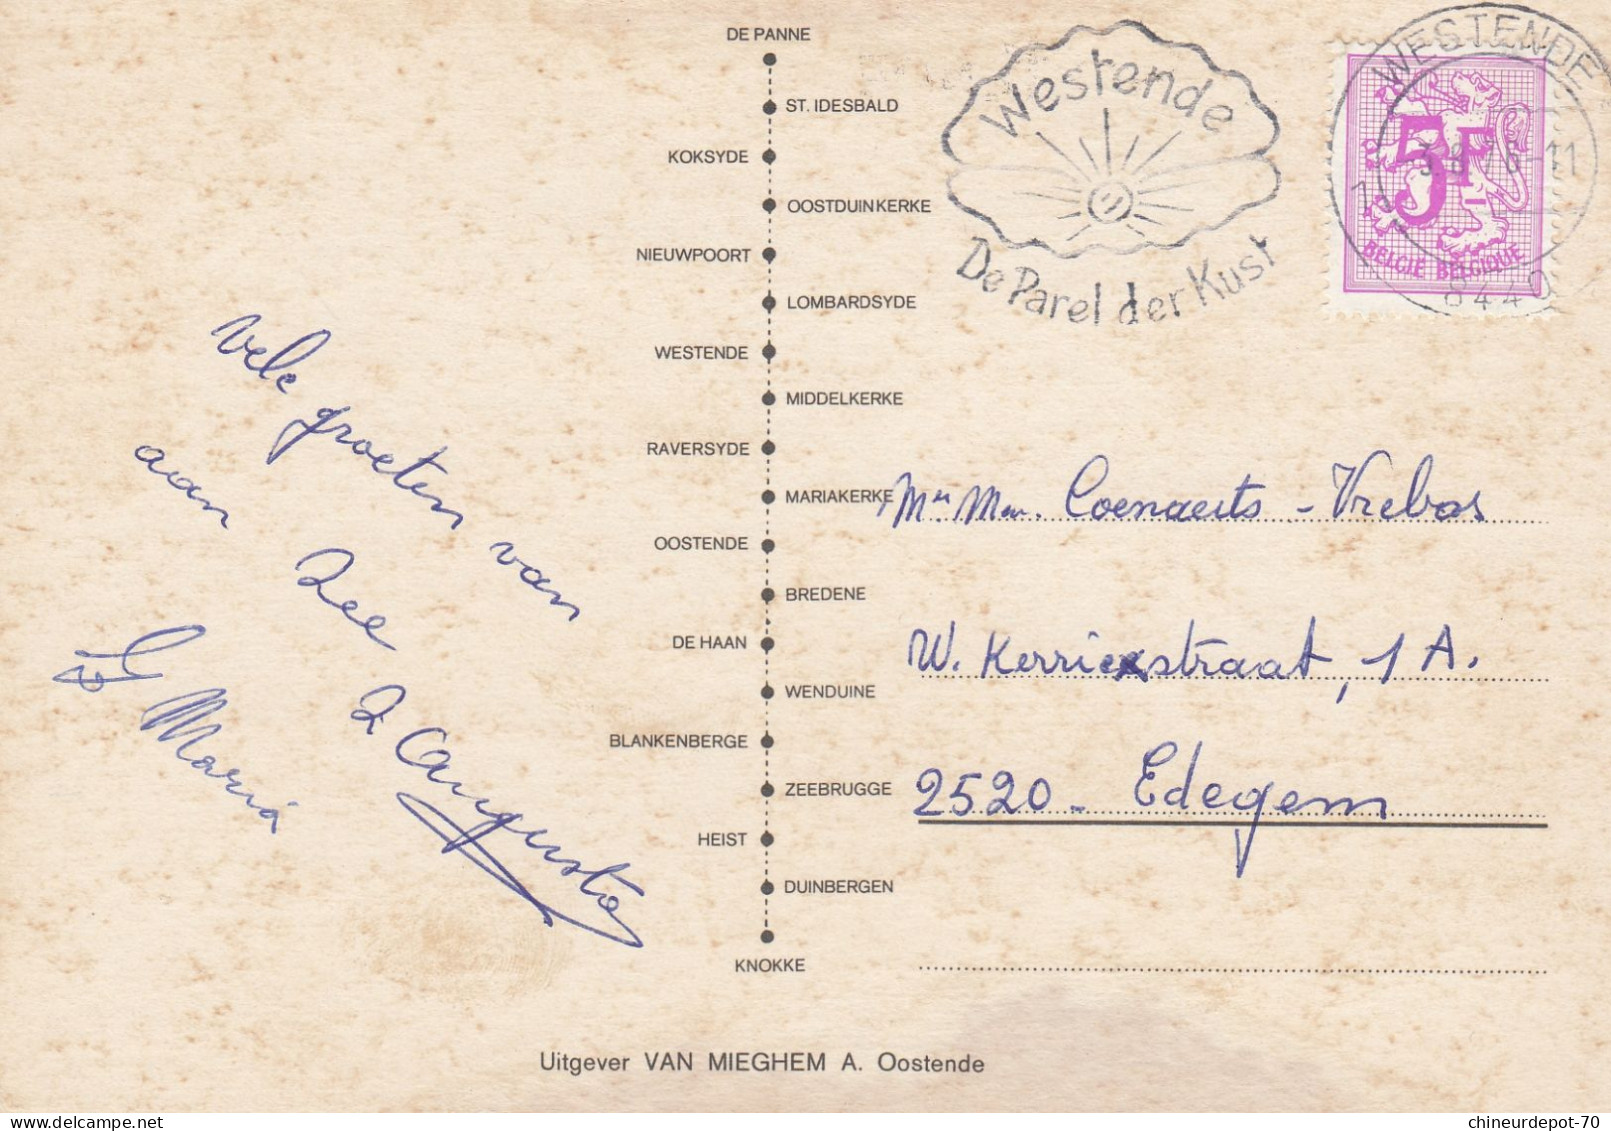 DE PANNE
ST. IDESBALD
KOKSYDE
OOSTDUINKERKE
NIEUWPOORT
LOMBARDSYDE
WESTENDE
MIDDELKERKE
RAVERSYDE
MARIAKERKE
OOSTENDE
BREDENE
DE HAAN
WENDUINE
BLANKENBERGE
ZEEBRUGGE
HEIST
DUINBERGEN
KNOKKE
Westende
De Parel der Kust
WESTENDE
3.8.76-11
8440
5F
BELGIË BELGIQUE
Vele groeten van
aan zee 2 Augusta
Maria
Mer Mw. Coenaerts - Vrebos
W. Kerriexstraat, 1 A.
2520 - Edegem
Uitgever VAN MIEGHEM A. Oostende
chineurdepot-70